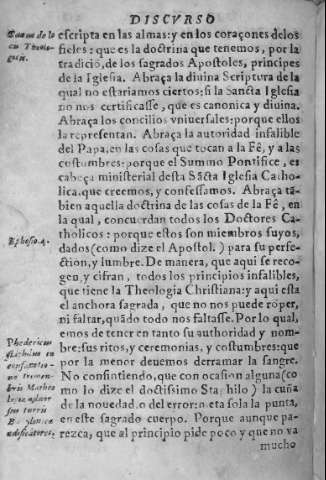 DISCVRSO
escripta en las almas: y en los coraçones delos
fieles: que es la doctrina que tenemos, por la
tradiciō, de los sagrados Apostoles, principes
de la Iglesia. Abraça la diuina Scriptura de la
qual no estariamos ciertos: si la Sancta Iglesia
no nos certificasse, que es canonica y diuina.
Abraça los concilios vniuersales: porque ellos
la representan. Abraça la autoridad infalible
del Papa, en las cosas que tocan a la Fê, y a las
costumbres: porque el Summo Pontifice, es
cabeça ministerial desta Sācta Iglesia Catho-
lica, que creemos, y confessamos. Abraça tā-
bien aquella doctrina de las cosas de la Fê, en
la qual, concuerdan todos los Doctores Ca-
tholicos: porque estos son miembros suyos,
dados (como dize el Apostol.) para su perfe-
ction, y lumbre. De manera, que aqui se reco-
gen, y cifran, todos los principios infalibles,
que tiene la Theologia Christiana: y aqui esta
el anchora sagrada, que no nos puede rōper,
ni faltar, quādo todo nos faltasse. Por lo qual,
emos de tener en tanto su authoridad y nom-
bre: sus ritos, y ceremonias, y costumbres: que
por la menor deuemos derramar la sangre.
No consintiendo, que con ocasion alguna (co
mo lo dize el doctissimo Staphilo) la cuña
de la nouedad, o del error: meta sola la punta,
en este sagrado cuerpo. Porque aunque pa-
rezca, que al principio pide poco y que no va
mucho
Ephesio. 4.
Phedericus